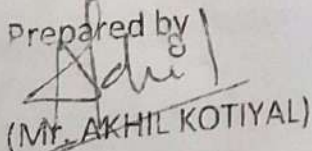 Prepared by
(Mr. AKHIL KOTIYAL)